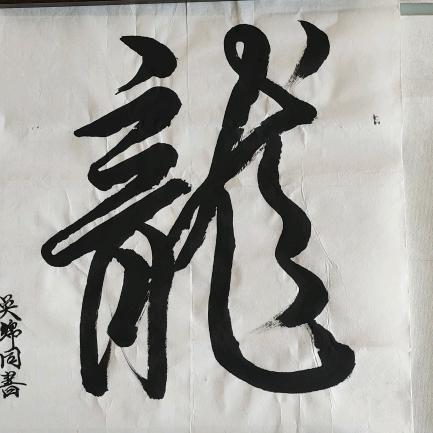 龍
吳錦同書